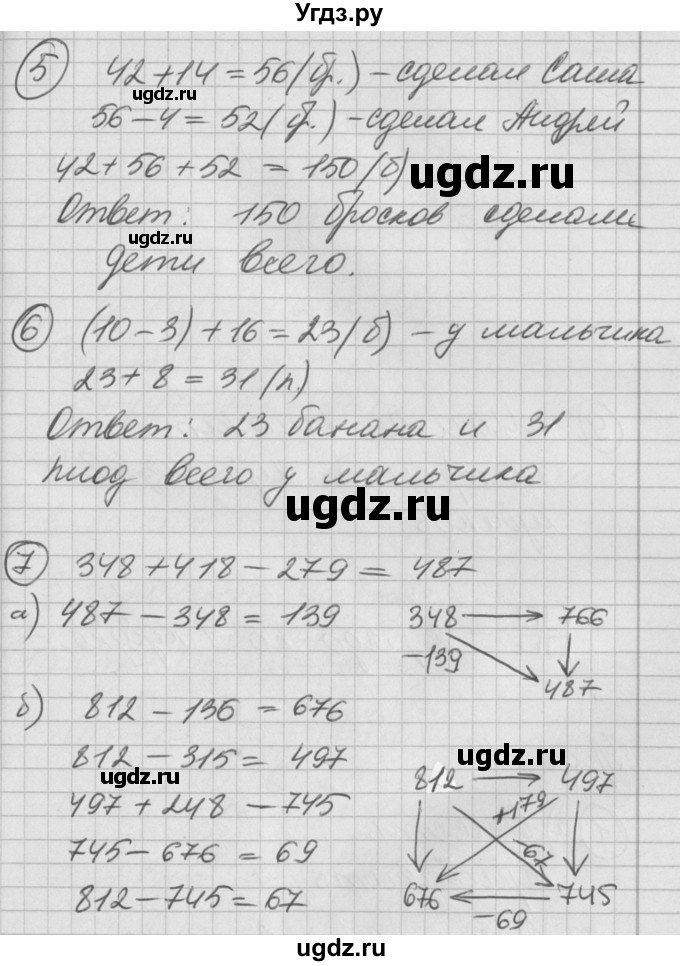 Угдз.ру
5 42+14=56(бр.) – сделал Саша
56–4=52(б.) – сделал Андрей
42+56+52 = 150(б)
Ответ: 150 бросков сделали
дети всего.
6 (10–3)+16=23(б) – у мальчика
23+8=31(п)
Ответ: 23 банана и 31
плод всего у мальчика
7 348+418–279=487
а) 487–348=139
348 766
–139
487
б) 812–136=676
812–315=497
497+248–745
745–676=69
812–745=67
812 497
+179
–67
676 745
–69
ugdz.ru
ugdz.ru
ugdz.ru
ugdz.ru
ugdz.ru
ugdz.ru
ugdz.ru